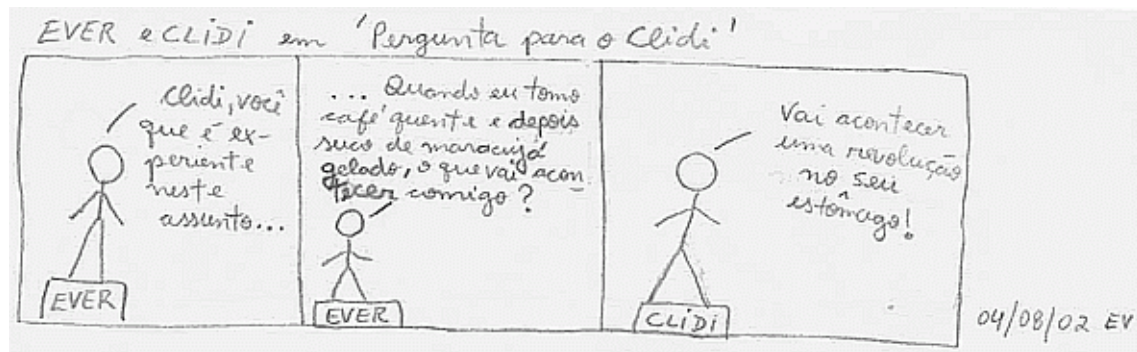 EVER e CLiDi em 'Pergunta para o Clidi'
Clidi, você
que é ex-
periente
neste
assunto...
EVER
... Quando eu tomo
café quente e depois
suco de maracujá
gelado, o que vai acon-
tecer comigo?
EVER
Vai acontecer
uma revolução
no seu
estômago!
CLiDi
04/08/02 EV